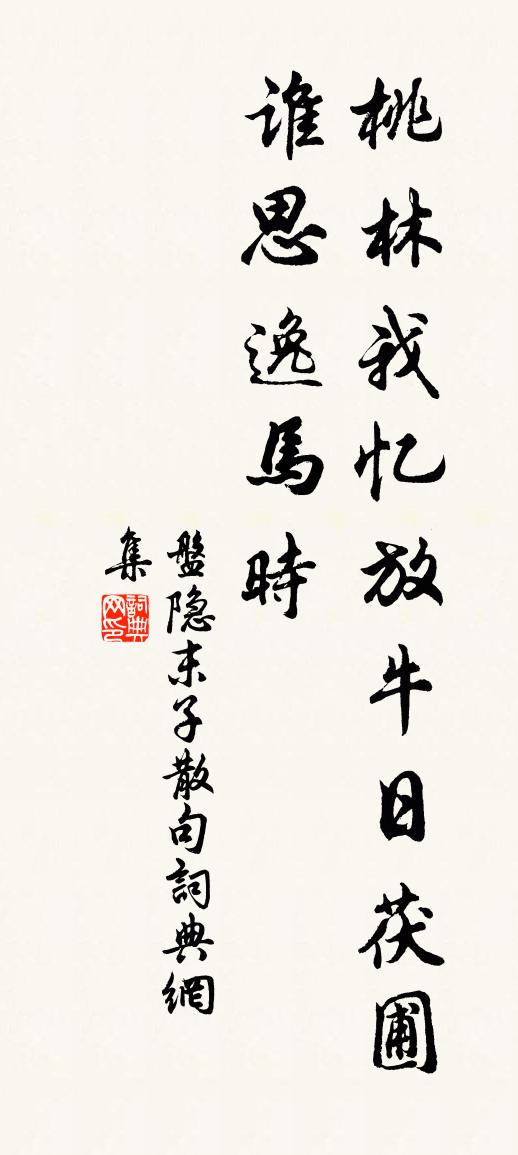 桃林我忆放牛日茯圃
谁思逸馬時
盤隐末子散句詞典網
集
詞典
网印